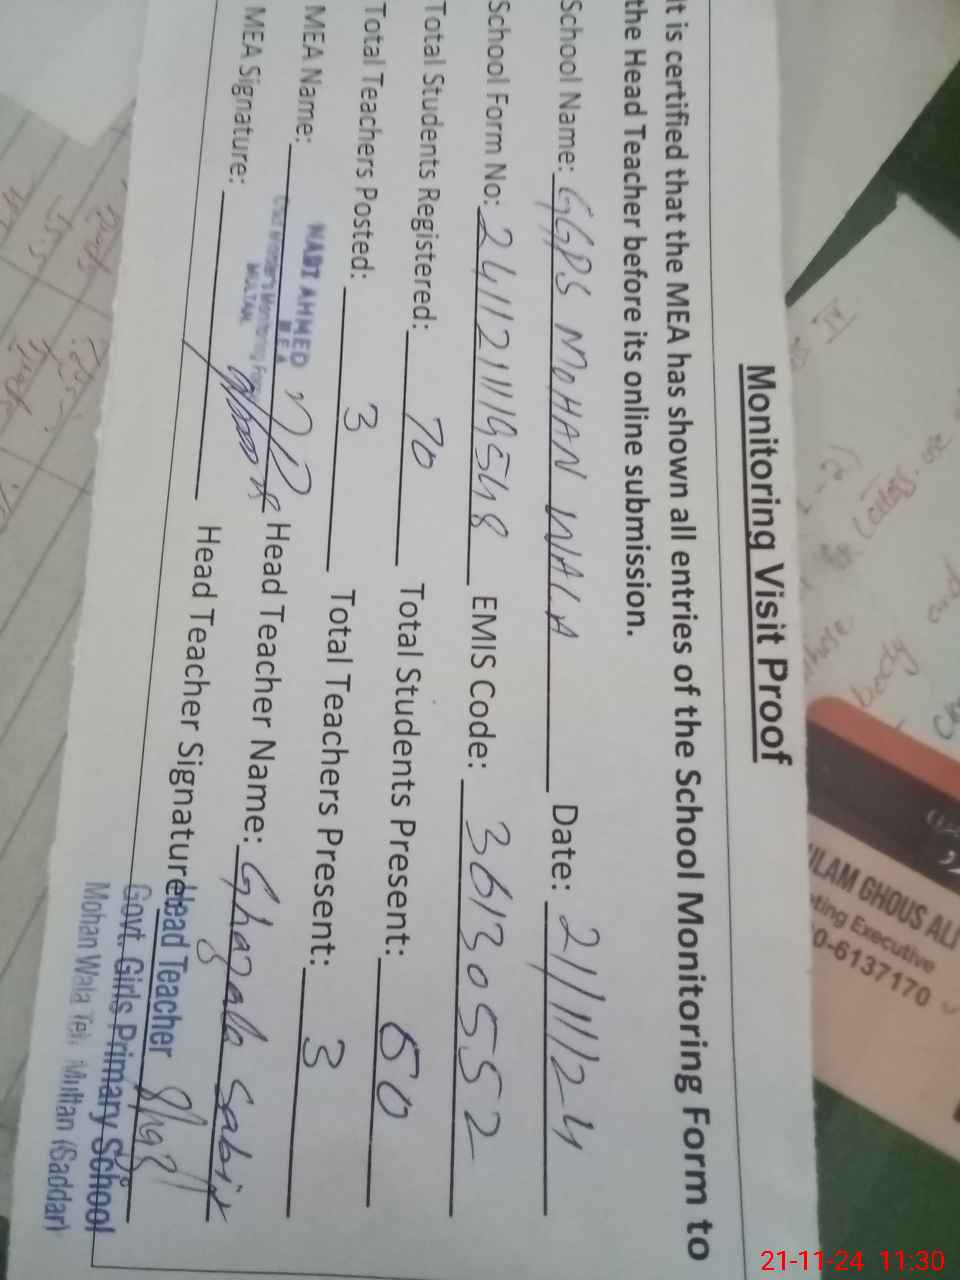 Monitoring Visit Proof
It is certified that the MEA has shown all entries of the School Monitoring Form to
the Head Teacher before its online submission.
School Name: GGPS MOHAN WALA Date: 21/11/24
School Form No: 2411211119548 EMIS Code: 36130552
Total Students Registered: 70 Total Students Present: 60
Total Teachers Posted: 3 Total Teachers Present: 3
MEA Name: Head Teacher Name: Ghazala Sabir
NABI AHMED
M.E.A
Chief Minister's Monitoring Force
MULTAN.
MEA Signature: Head Teacher Signature
Head Teacher
Govt. Girls Primary School
Mohan Wala Teh Multan (Saddar)
ULAM GHOUS ALI
ting Executive
0-6137170
IV
body
and
21-11-24 11:30